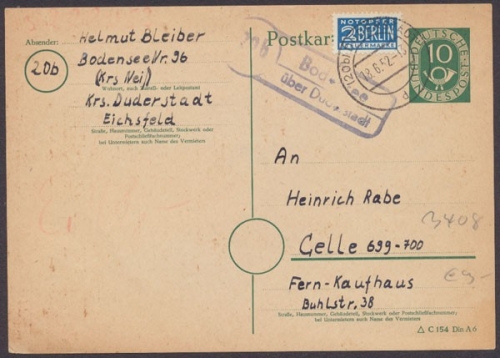 Absender:
Helmut Bleiber
BodenseeNr. 96
(Krs Neil)
20b
Wohnort, auch Zustell- oder Leitpostamt
Krs. Duderstadt
Eichsfeld
Straße, Hausnummer, Gebäudeteil, Stockwerk oder
Postschließfachnummer;
bei Untermietern auch Name des Vermieters
Postkar
NOTOPFER
2 BERLIN
STEUERMARKE
20b
Bod ee
über Duderstadt
(20b)
18.6.52
d
DEUTSCHE
BUNDESPOST
10
An
Heinrich Rabe
Celle 699-700
Fern-Kaufhaus
Buhlstr, 38
Straße, Hausnummer, Gebäudeteil, Stockwerk oder Postschließfachnummer;
bei Untermietern auch Name des Vermieters
3408
€9,-
C 154 Din A6